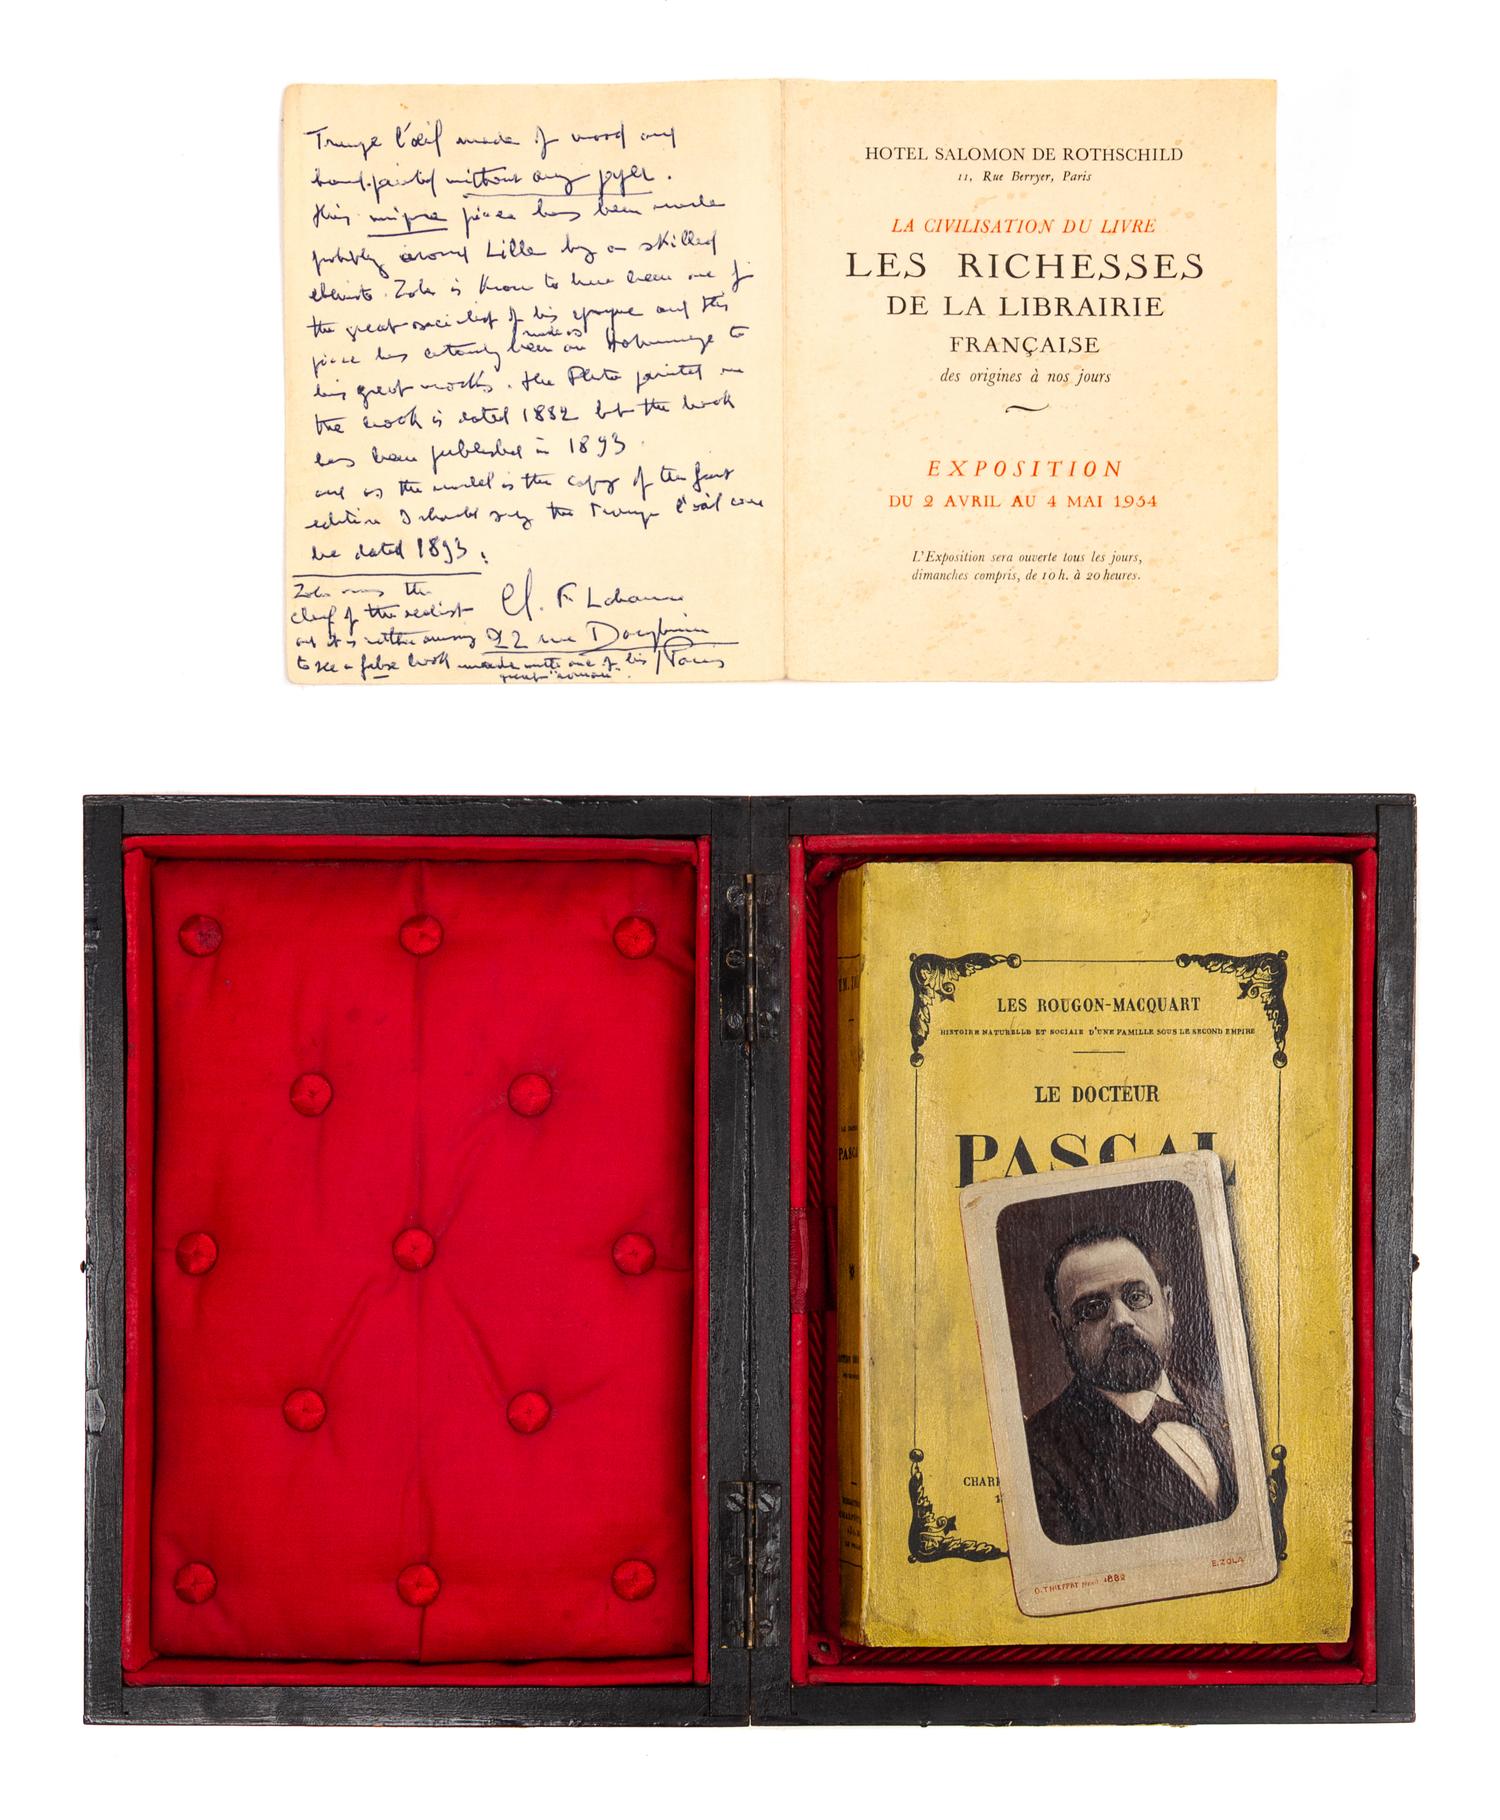 Trompe l'œil made of wood and
hand-painted without any paper.
this unique piece has been made
probably around Lille by a skilled
ebeniste. Zola is know to have been one of
the great socialist of his epoque and this
piece has certainly been made as an Hommage to
his great works. the Photo painted on
the book is dated 1882 but the book
has been published in 1893.
and as the model is the copy of the first
edition I should say the Trompe l'œil can
be dated 1893.
Zola was the
chief of the realist
and it is rather amusing
to see a false book made with one of his
great "roman".
Cl. F. 
22 rue
Paris
HOTEL SALOMON DE ROTHSCHILD
11, Rue Berryer, Paris
LA CIVILISATION DU LIVRE
LES RICHESSES
DE LA LIBRAIRIE
FRANÇAISE
des origines à nos jours
EXPOSITION
DU 2 AVRIL AU 4 MAI 1954
L'Exposition sera ouverte tous les jours,
dimanches compris, de 10 h. à 20 heures.
LES ROUGON-MACQUART
HISTOIRE NATURELLE ET SOCIALE D'UNE FAMILLE SOUS LE SECOND EMPIRE
LE DOCTEUR
PASCAL
CHAR
E. ZOLA
O. THIEFFRY 1882